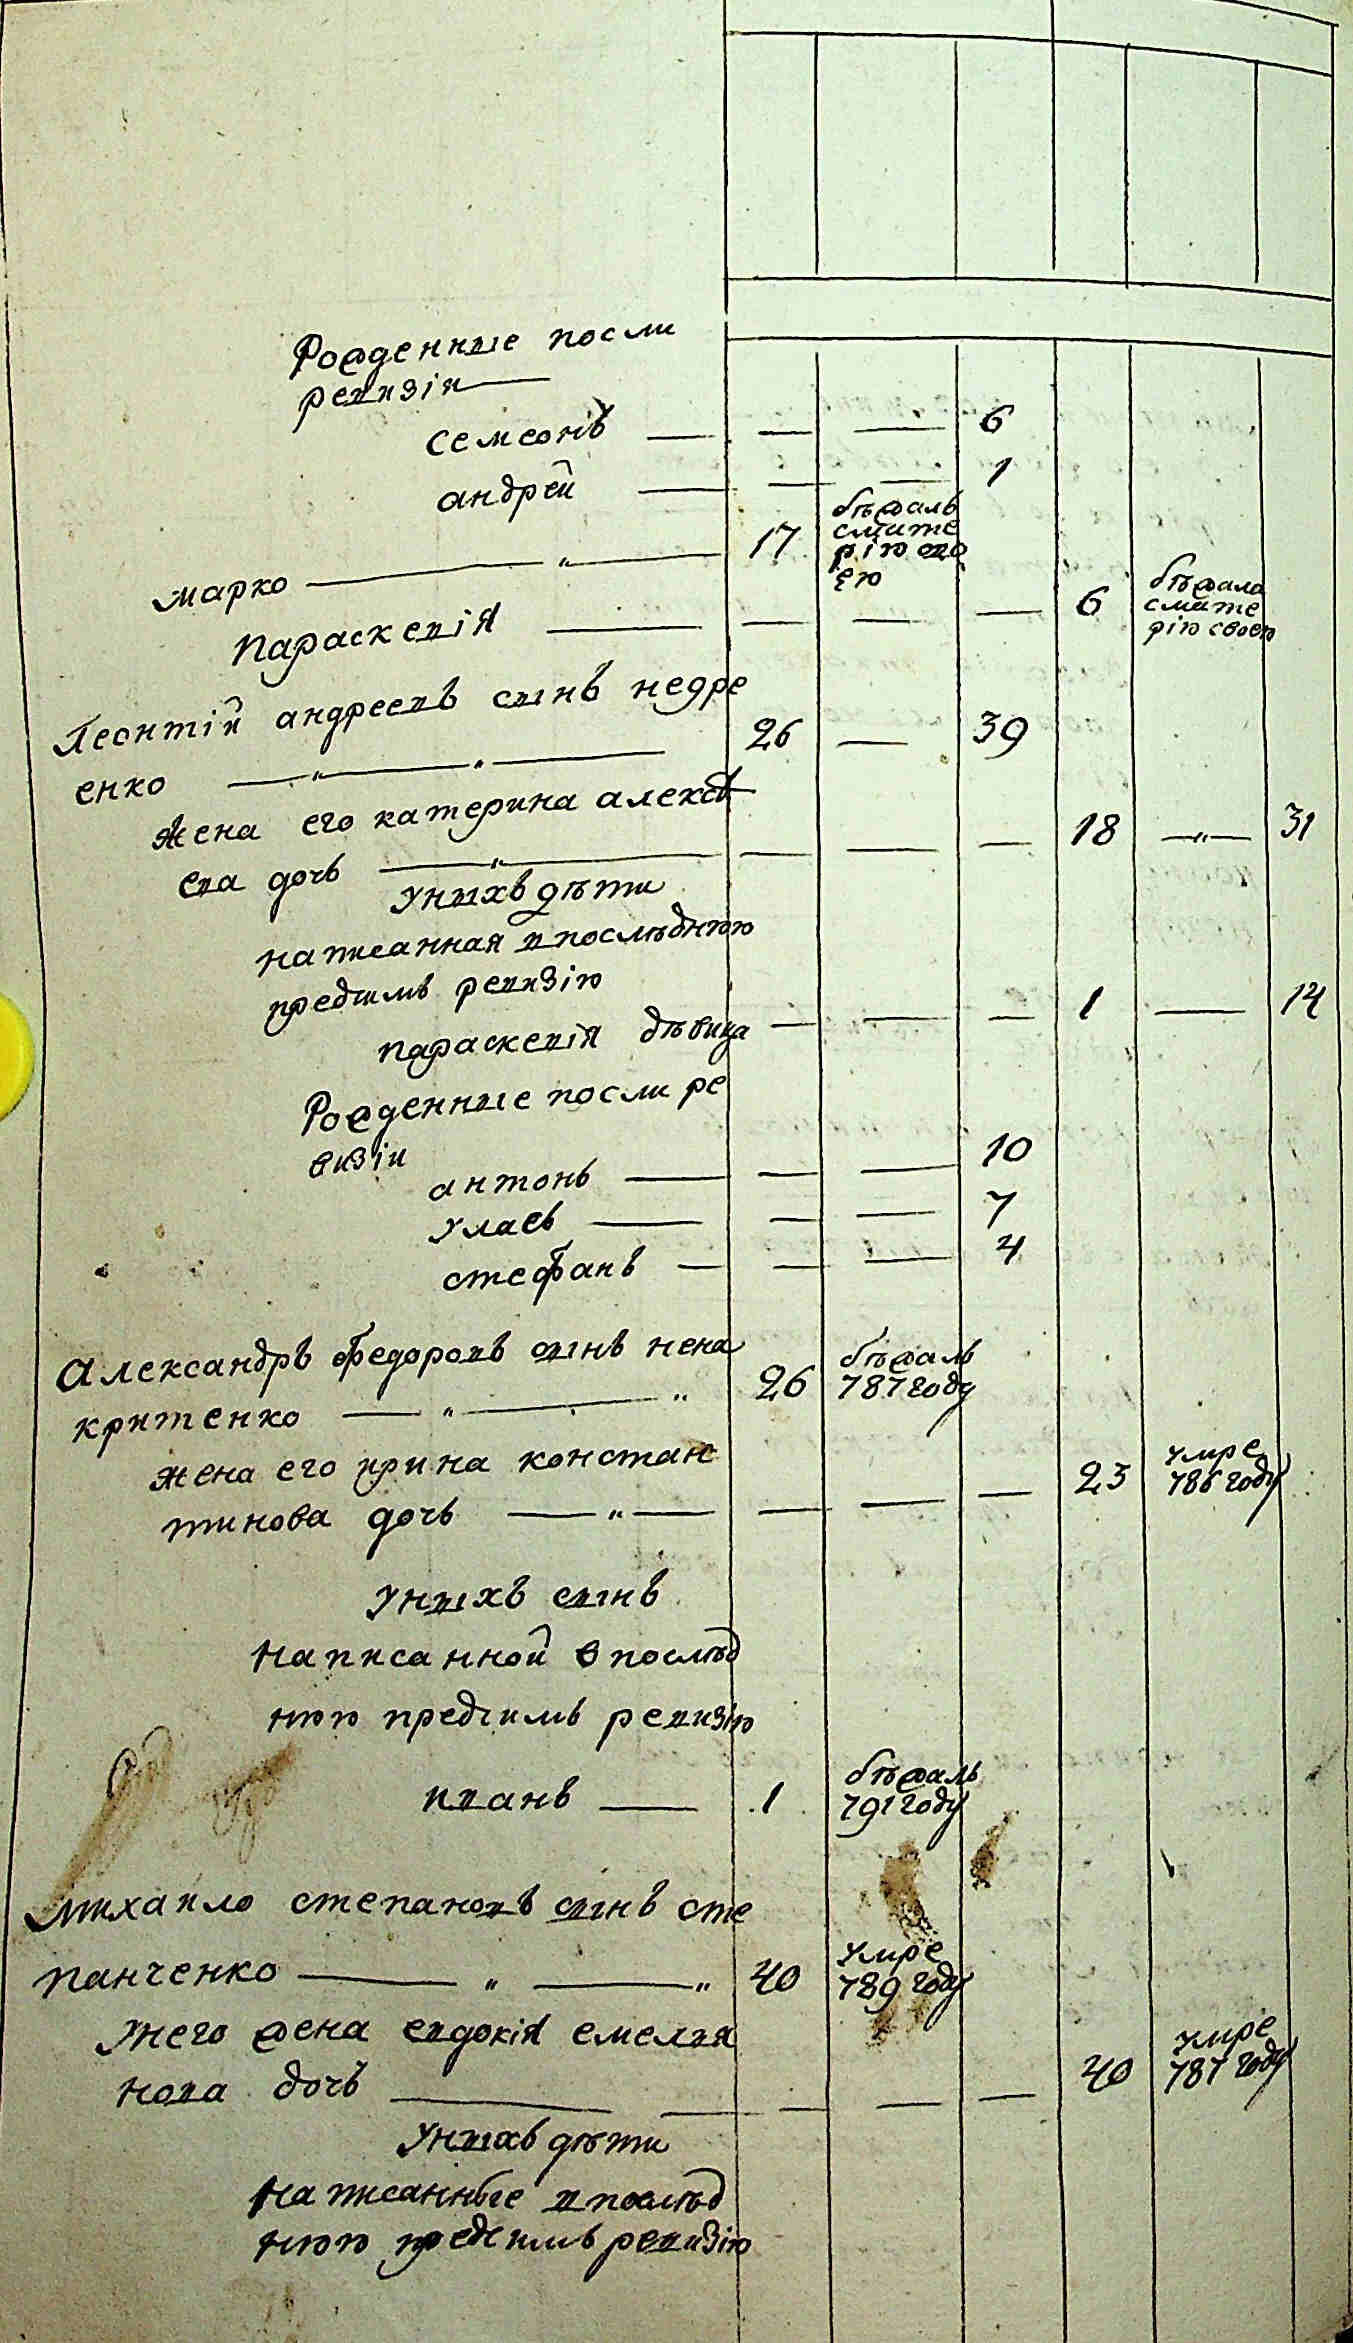 Рожденные посли
ревизіи
семеонъ — — — 6
андрей — — — 1
марко — „ — 17 бѣжалъ
смате
рію сво
ею
Параскевія — — — — 6 бѣжала
смате
рію своею
Леонтій андреевъ сынъ недре
енко — „ — „ — 26 — 39
жена его катерина алексѣ
ева дочь — „ — — — — 18 — „ — 31
Уныхъ дѣти
написанная впослѣднюю
предсимъ ревизію
параскевія дѣвица — — — 1 — 14
Рожденные посли ре
визіи
антонъ — — — 10
Улась — — — 7
стефанъ — — — 4
Александръ федоровъ сынъ нена
критенко — „ — „ 26 бѣжалъ
787 году
жена его ирина констан
тинова дочь — „ — — — — 23 умре
786 году
Уныхъ сынъ
написанной впослѣд
нюю предсимъ ревизію
иванъ — 1 бѣжалъ
791 году
Михаило степановъ сынъ сте
панченко — „ — „ 40 умре
789 году
Унего жена евдокія емелья
нова дочь — — — — — 40 умре
787 году
Уныхъ дѣти
написанные впослѣд
нюю предсимъ ревизію